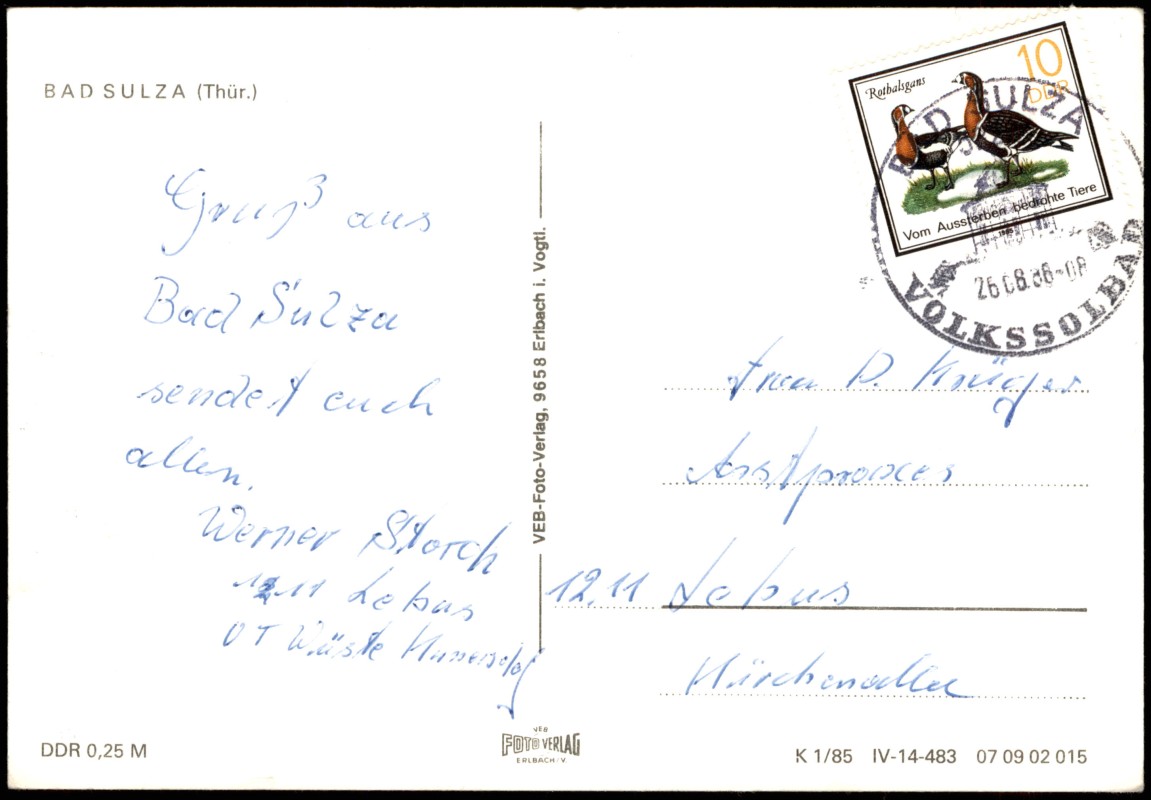 BAD SULZA (Thür.)
Gruß aus
Bad Sulza
sendet euch
allen.
Werner Storch
1211 Lebus
OT Wüste Kunersdorf
VEB-Foto-Verlag, 9658 Erlbach i. Vogtl.
Rothalsgans
10
DDR
Vom Aussterben bedrohte Tiere
1985
BAD SULZA
26.08.86-08
VOLKSSOLBAD
Frau D. Krüger
Arztpraxes
1211 Lebus
Kirchenallee
DDR 0,25 M
VEB
FOTO VERLAG
ERLBACH/V.
K 1/85 IV-14-483 07 09 02 015